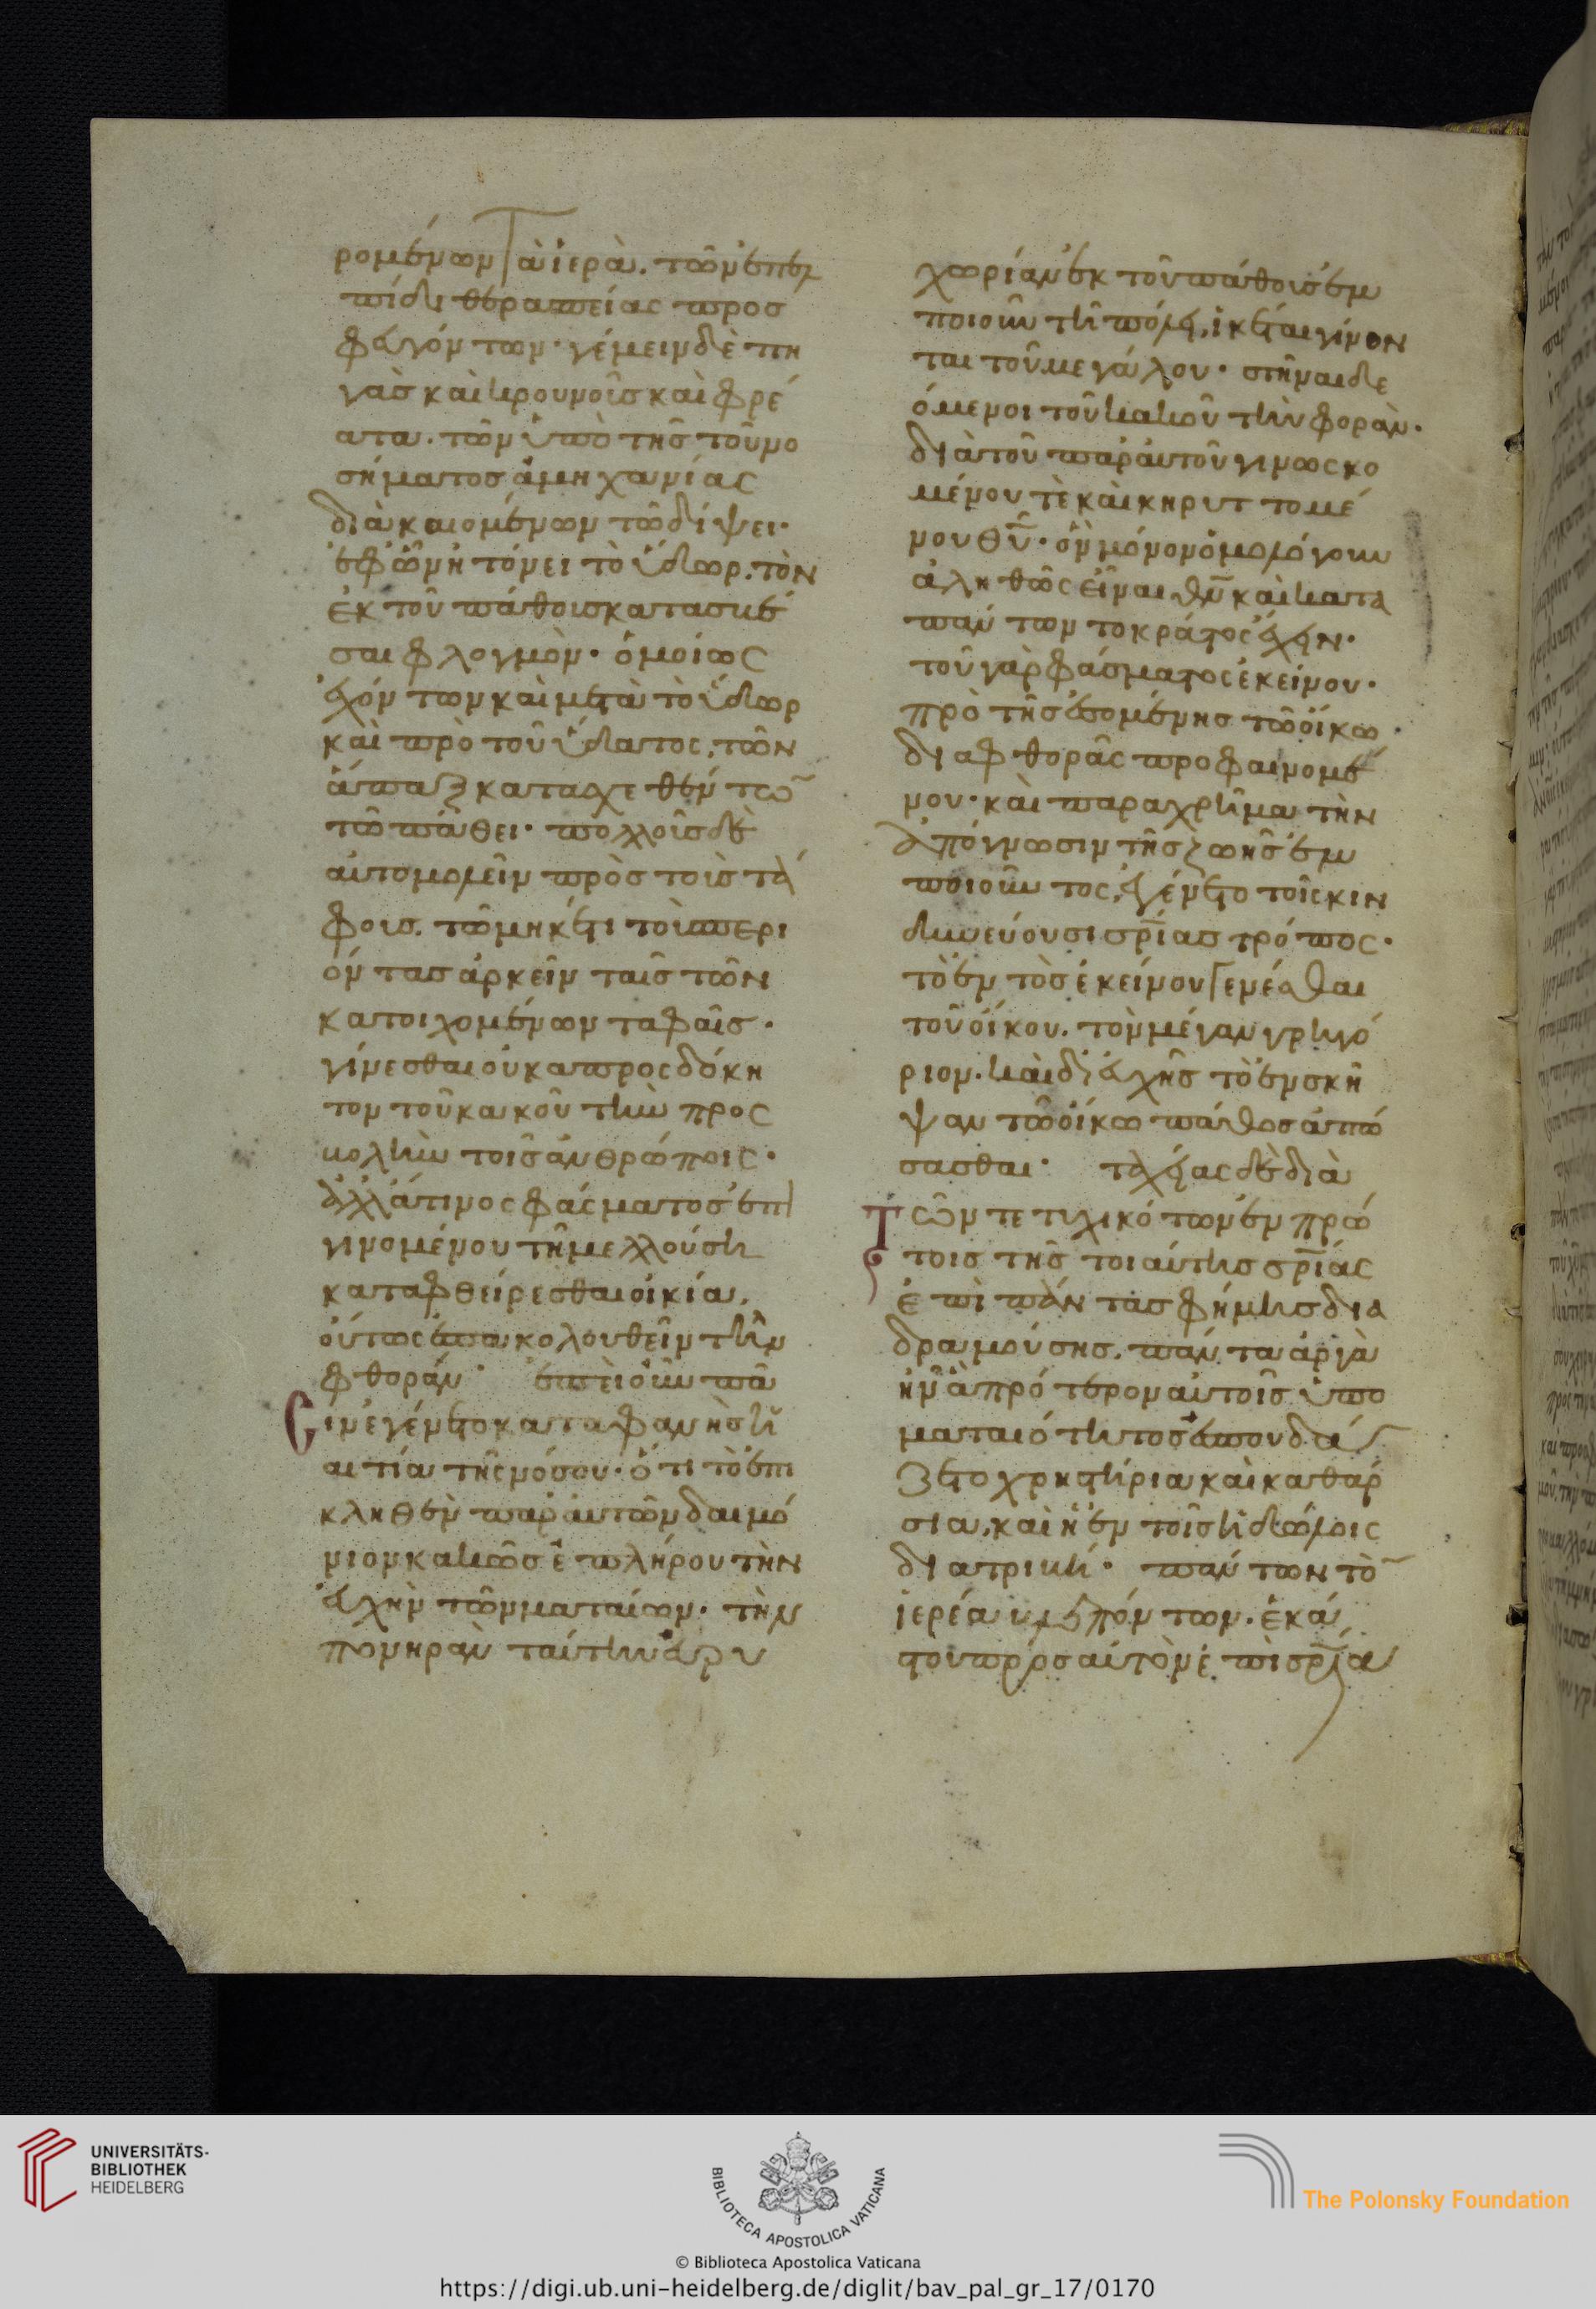 ρομένων τὰ ἱερὰ. τῶν ἐπ ἐλ
πίδι θεραπείας προσ
φευγόντων· γέμειν δὲ πη
γὰς καὶ κρουνοὺς καὶ φρέ
ατα. τῶν ὑπὸ τῆς τοῦ νο
σήματος ἀμηχανίας
διακαιομένων τῶ δίψει·
ἐφ ὧν ἠτόνει τὸ ὕδωρ. τὸν
ἐκ τοῦ πάθους κατασβέ
σαι φλογμὸν· ὁμοίως
ἐχόντων καὶ μετὰ τὸ ὕδωρ
καὶ πρὸ τοῦ ὕδατος, τῶν
ἅπαξ κατασχεθέντων
τῶ πάθει· πολλοὺς δὲ
αὐτομολεῖν πρὸς τοὺς τά
φους. τῶ μηκέτι τοὺς περι
όντας ἀρκεῖν ταῖς τῶν
κατοιχομένων ταφαῖς·
γίνεσθαι οὐκ ἀπροσδόκη
τον τοῦ κακοῦ τὴν προς
βολὴν τοῖς ἀνθρώποις·
ἀλλά τινος φάσματος ἐπι
γινομένου τῇ μελλούσῃ
καταφθείρεσθαι οἰκία,
οὕτως ἐπακολουθεῖν τὴν
φθοράν· ἐπεὶ οὖν πᾶ
σιν ἐγένετο καταφανὴς ἡ
αἰτία τῆς νόσου· ὅτι τὸ ἐπι
κληθὲν παρ αὐτῶν δαιμό
νιον κακῶς ἐπλήρου τὴν
εὐχὴν τῶν ματαίων. τὴν
πονηρὰν ταύτην εὐρυ
χωρίαν ἐκ τοῦ πάθους ἐμ
ποιοῦν τῇ πόλει, ἱκέται γίνον
ται τοῦ μεγάλου· στῆναι δε
όμενοι τοῦ κακοῦ τὴν φορὰν.
διὰ τοῦ παρ αὐτοῦ γινωσκο
μένου τὲ καὶ κηρυττομέ
νου θυ· ὃν μόνον ὁμολόγουν
ἀληθῶς εἶναι θν καὶ κατὰ
πάντων τὸ κράτος ἔχειν.
τοῦ γὰρ φάσματος ἐκείνου.
πρὸ τῆς ἑπομένης τῶ οἴκω
διαφθορᾶς προφαινομέ
νου· καὶ παραχρῆμα τὴν
ἀπόγνωσιν τῆς ζωῆς ἐμ
ποιοῦντος, εἷς ἐγένετο τοῖς κιν
δυνεύουσι σρίας τρόπος·
τὸ ἐντὸς ἐκείνου γενέσθαι
τοῦ οἴκου. τὸν μέγαν γρηγό
ριον. καὶ δι εὐχῆς τὸ ἐνσκῆ
ψαν τῶ οἴκω πάθος ἀπώ
σασθαι· ταχείας δὲ διὰ
τῶν τετυχηκότων ἐν πρώ
τοις τῆς τοιαύτης σρίας
ἐπὶ πάντας φήμης δια
δραμούσης. πάντα ἀργὰ
ἦν ἃ πρότερον αὐτοῖς ὑπὸ
ματαιότητος ἐσπουδά
ζετο χρηστήρια καὶ καθάρ
σια, καὶ ἡ ἐν τοῖς εἰδώλοις
διατριβή· πάντων τὸν
ἱερέα βλεπόντων. ἑκά
στου πρὸς αὐτὸν ἐπὶ σρία
UNIVERSITÄTS-
BIBLIOTHEK
HEIDELBERG
BIBLIOTECA APOSTOLICA VATICANA
The Polonsky Foundation
© Biblioteca Apostolica Vaticana
https://digi.ub.uni-heidelberg.de/diglit/bav_pal_gr_17/0170